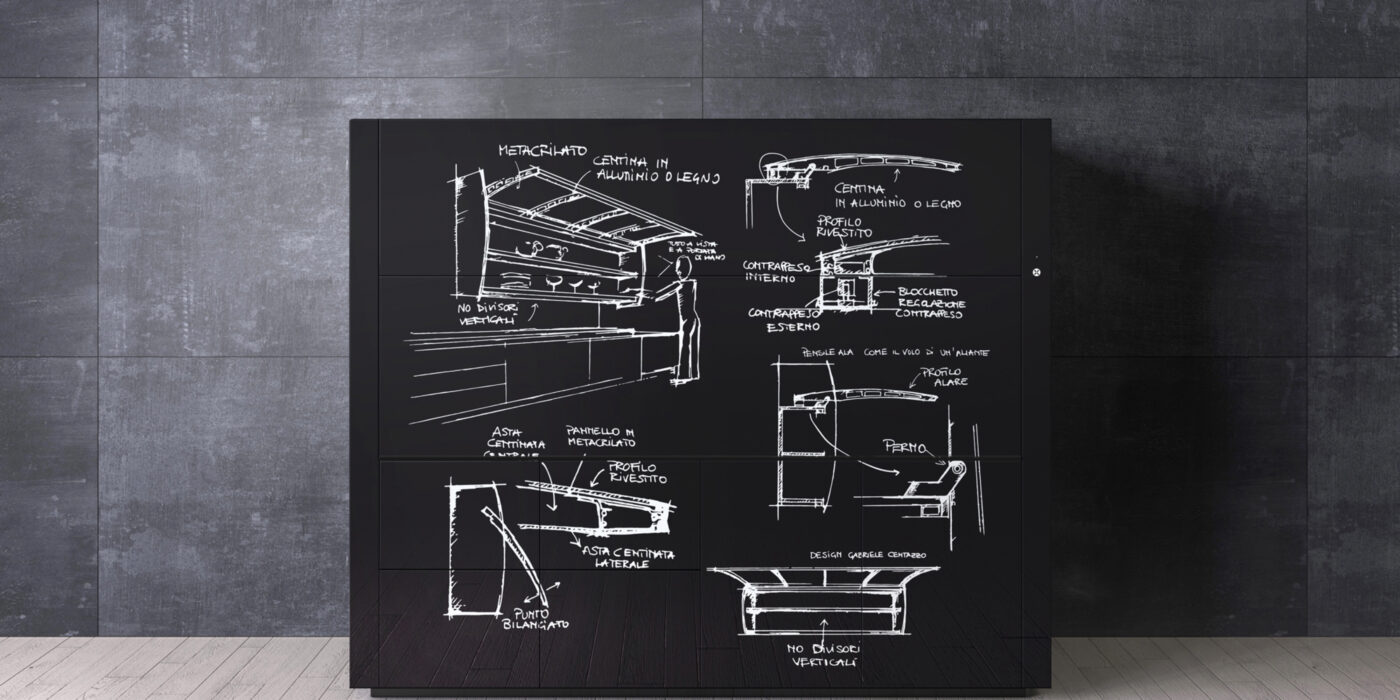 METACRILATO
CENTINA IN
ALLUMINIO O LEGNO
TUTTO A VISTA
E A PORTATA
DI MANO
NO DIVISORI
VERTICALI
CENTINA
IN ALLUMINIO O LEGNO
PROFILO
RIVESTITO
CONTRAPPESO
INTERNO
CONTRAPPESO
ESTERNO
BLOCCHETTO
REGOLAZIONE
CONTRAPPESO
PENSILE ALA COME IL VOLO DI UN'ALIANTE
PROFILO
ALARE
PERNO
ASTA
CENTINATA
CENTRALE
PANNELLO IN
METACRILATO
PROFILO
RIVESTITO
ASTA CENTINATA
LATERALE
PUNTO
BILANCIATO
DESIGN GABRIELE CENTAZZO
NO DIVISORI
VERTICALI